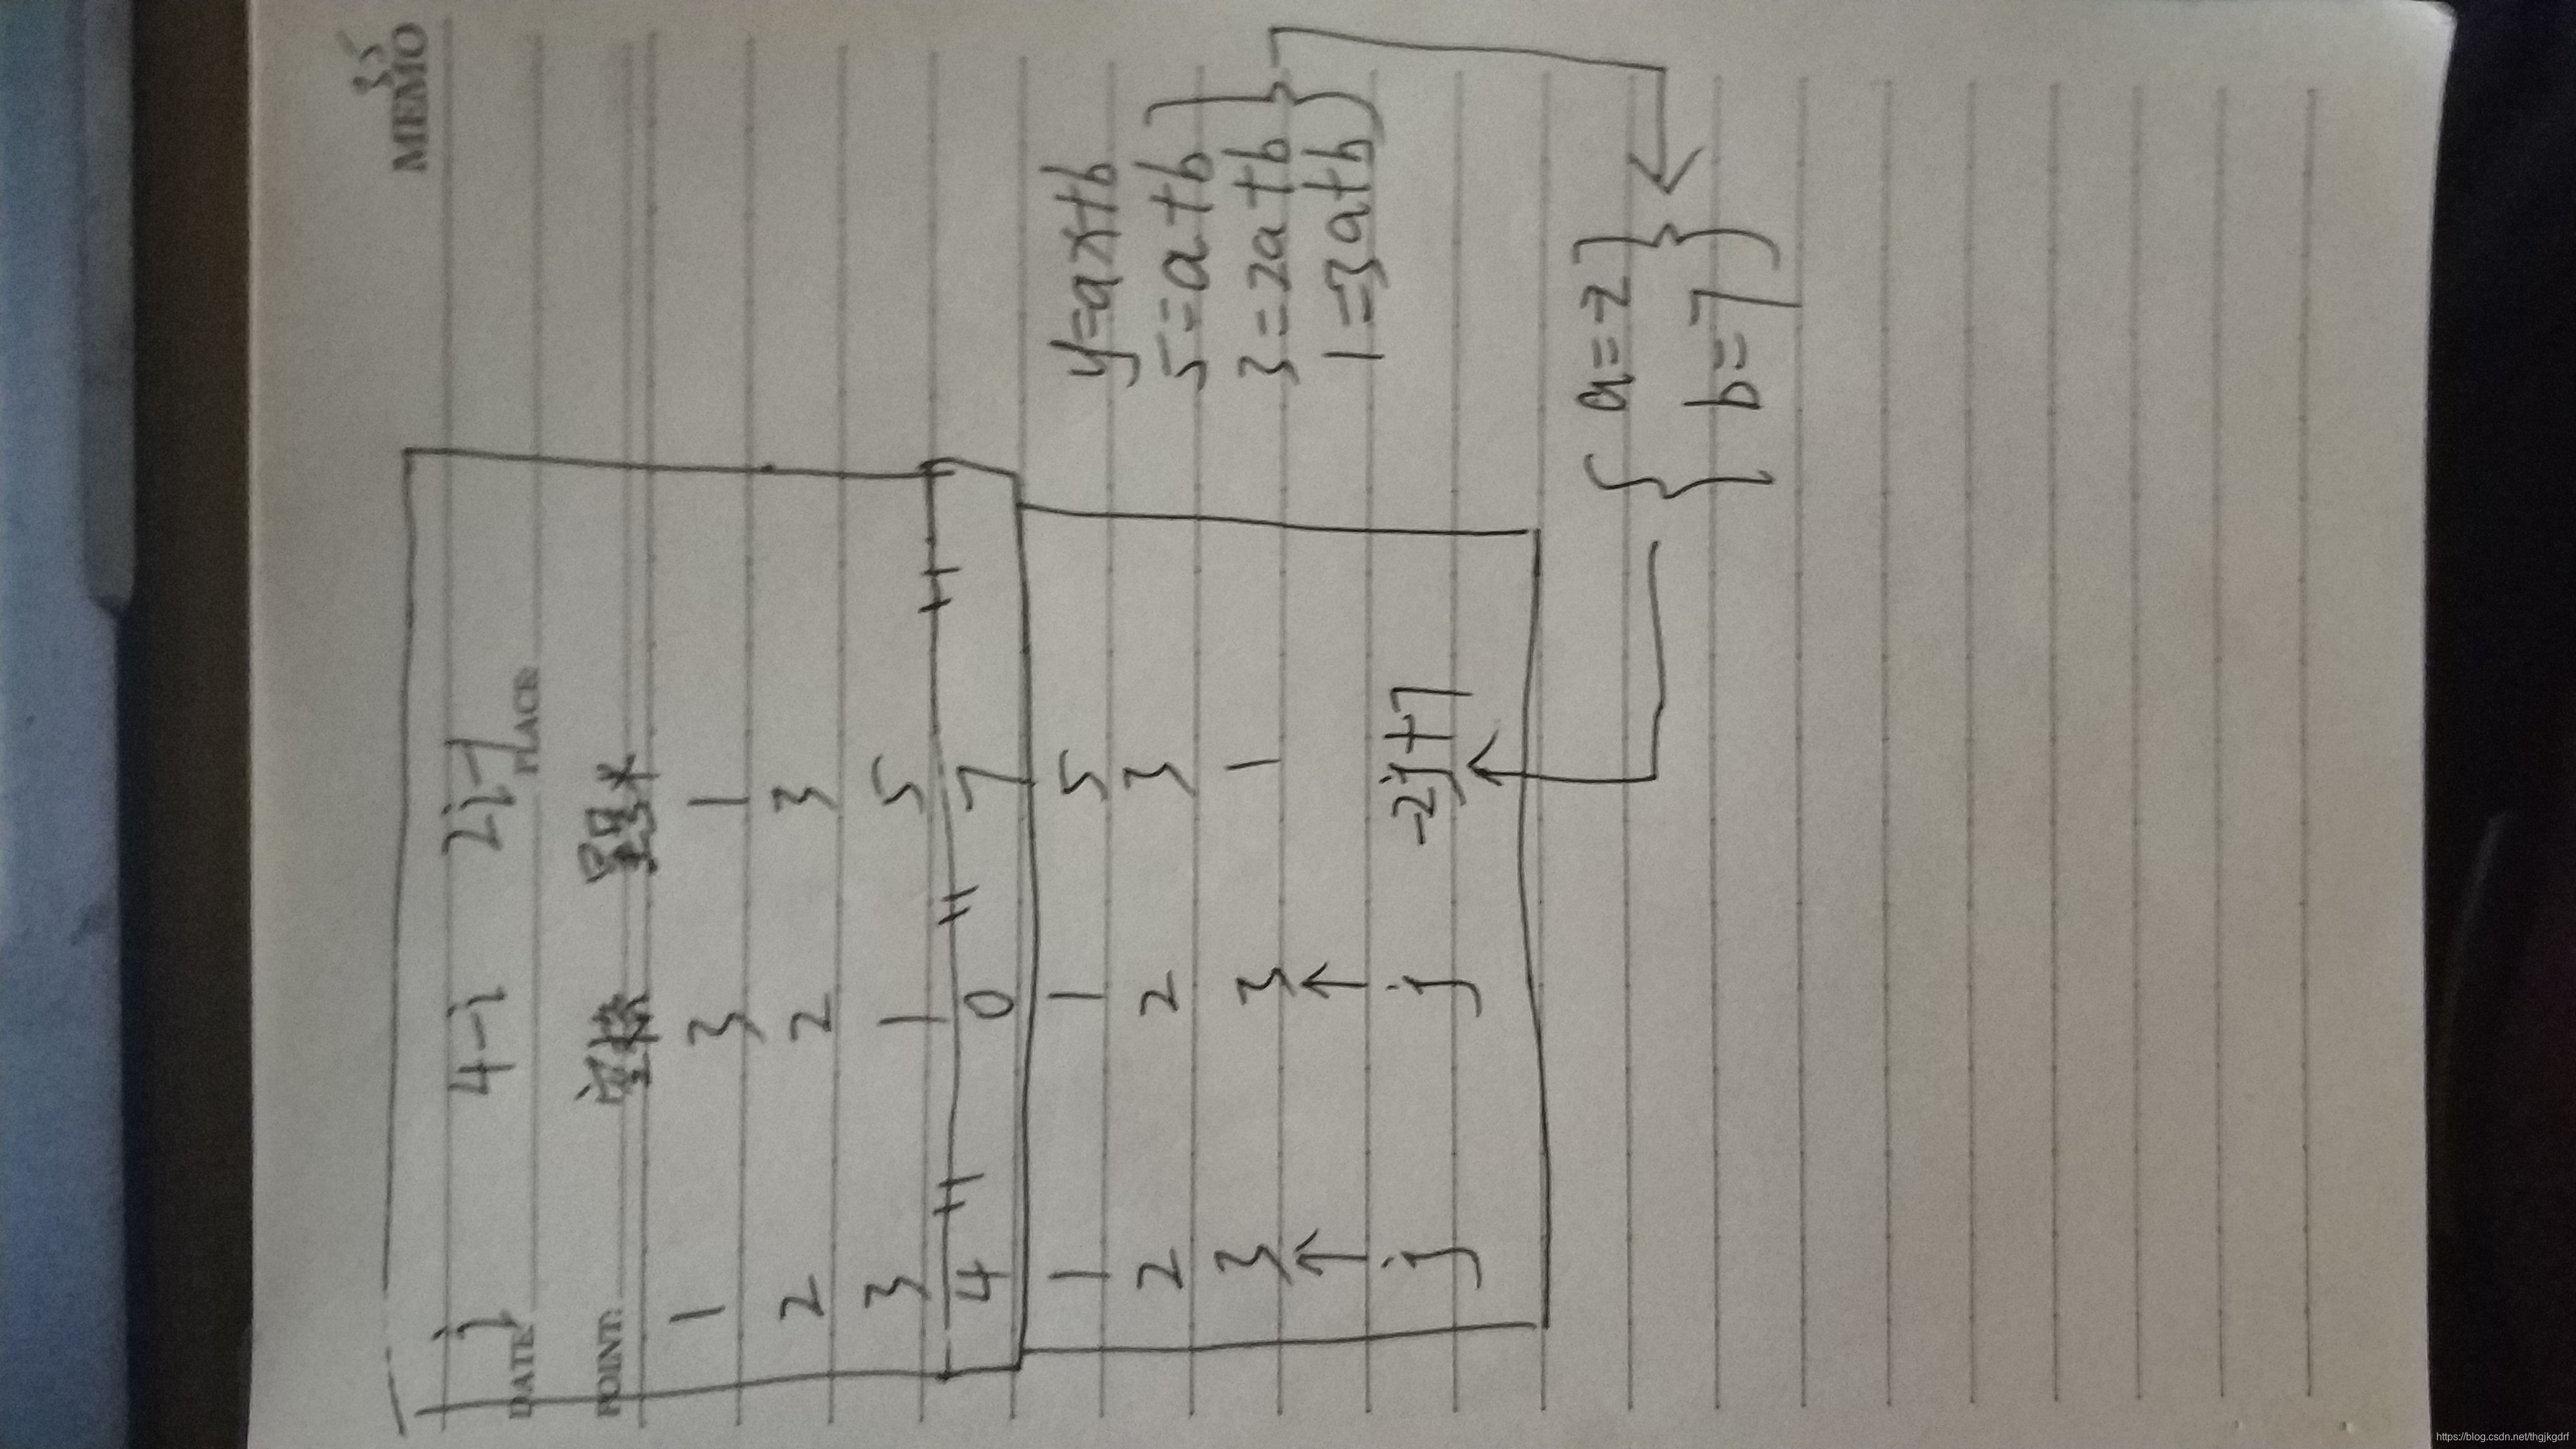 MEMO
i 4-i 2i-1
DATE PLACE
POINT: 空格 星*
1 3 1
2 2 3
3 1 5
4 0 7
1 1 5
2 2 3
3 3 1
j j -2j+7
y=ax+b
5=a+b
3=2a+b
1=3a+b
a=-2
b=7
https://blog.csdn.net/thgjkgdrf